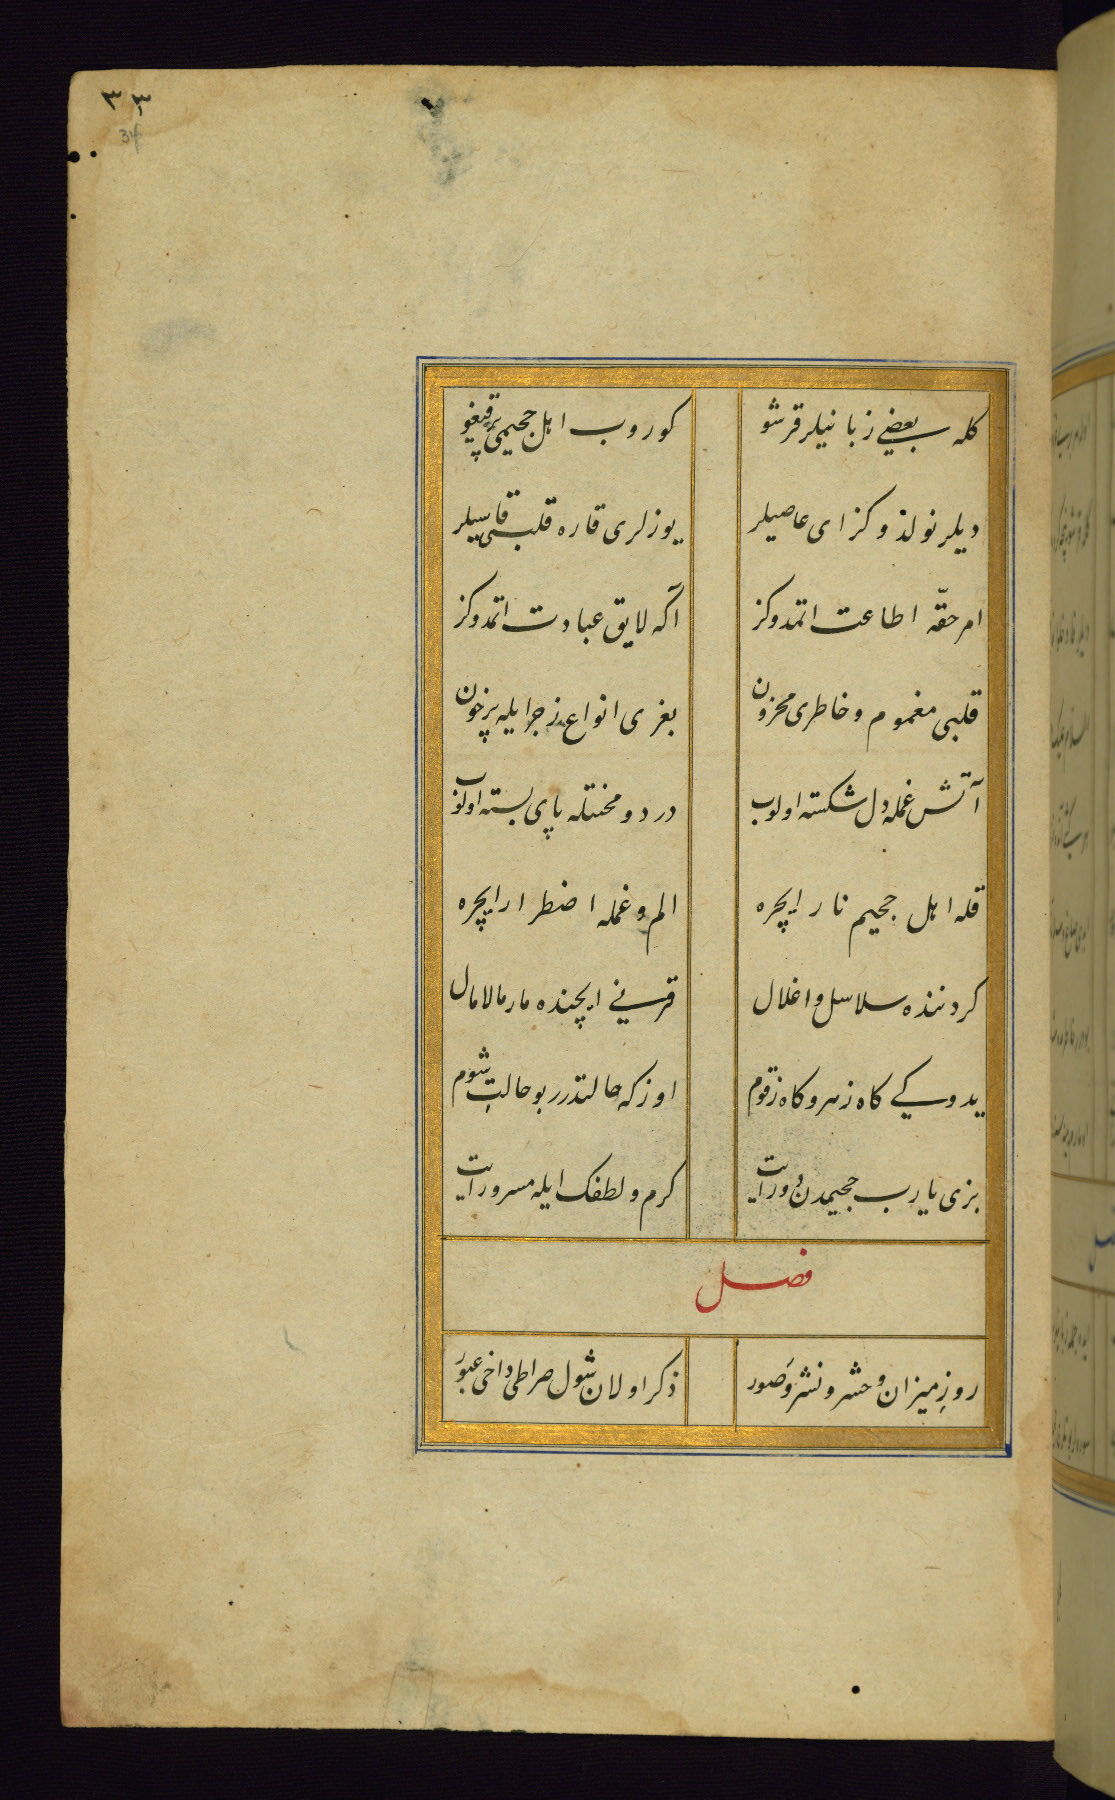 ٣٣
34
کله بعضی زبانیلر قرشو کوروب اهل جحیمی پر قیغو
دیلر نولدوکز ای عاصیلر یوزلری قاره قلب قاسیلر
امر حقّه اطاعت اتمدوکز آکه لایق عبادت اتمدوکز
قلبی مغموم و خاطری محزون بغری انواع زجر ایله پرخون
آتش غمله دل شکسته اولوب درد و محنتله پای بسته اولوب
قله اهل جحیم نار ایچره الم و غمله اضطرار ایچره
کردننده سلاسل و اغلال قرنی ایچنده مار مالامال
یدوکی کاه زهر و کاه زقوم اوزکه حالتدرر بو حالتِ شوم
بزی یارب جحیمدن دور ایت کرم و لطفک ایله مسرور ایت
فصل
روزِ میزان و حشر و نشر و صَور ذکر اولان شول صراطی داخی عبور